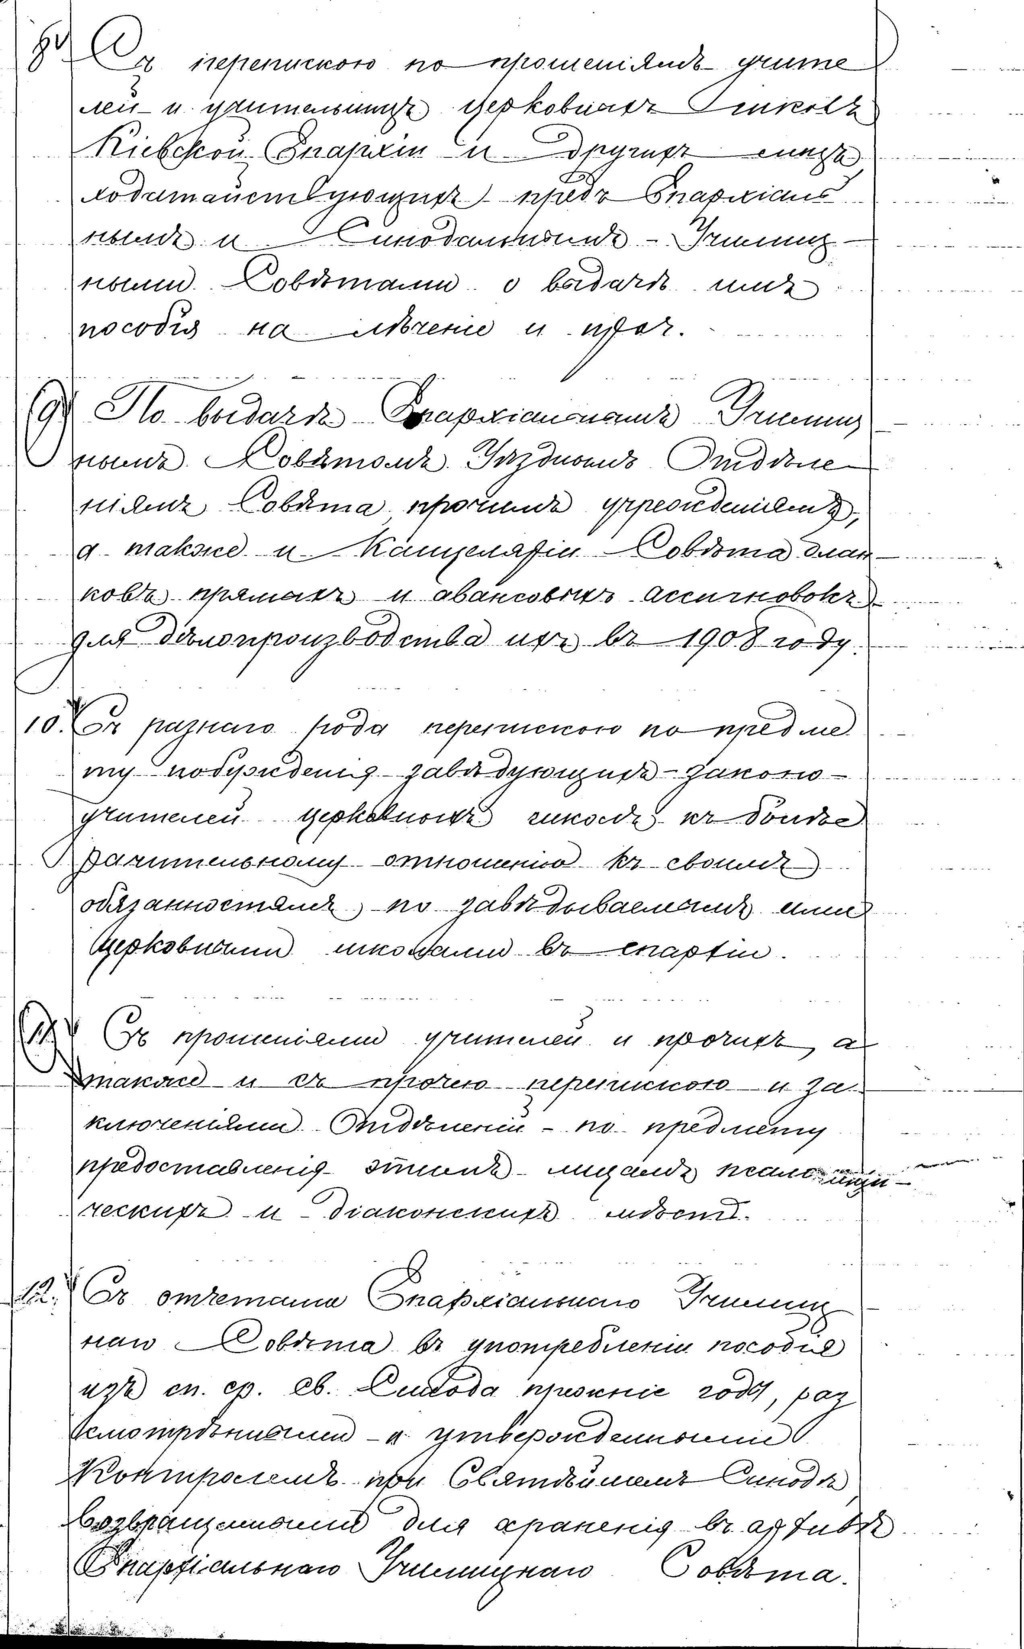 8) Съ перепискою по прошеніямъ учите
лей и учительницъ церковныхъ школъ
Кіевской Епархіи и другихъ лицъ
ходатайствующихъ предъ Епархіаль
нымъ и Синодальнымъ – Училищ
ными Совѣтами о выдачѣ имъ
пособія на лѣченіе и проч.
9) По выдачѣ Епархіальнымъ Училищ
нымъ Совѣтомъ Уѣзднымъ Отдѣле
ніямъ Совѣта прочимъ учрежденіямъ,
а также и Канцеляріи Совѣта блан
ковъ прямыхъ и авансовыхъ ассигновокъ
для дѣлопроизводства ихъ въ 1908 году.
10. Съ разнаго рода перепискою по предме
ту побужденія завѣдующихъ – законо –
учителей церковныхъ школъ къ болѣе
рачительному отношенію къ своимъ
обязанностямъ, по завѣдываемымъ ими
церковнымъ школамъ въ епархіи.
11) Съ прошеніями учителей и прочихъ, а
также и съ прочею перепискою и за
ключеніями Отдѣленій – по предмету
предоставленія этимъ лицамъ псаломщи –
ческихъ и діаконскихъ мѣстъ.
12. Съ отчетами Епархіальнаго Училищ
наго Совѣта въ употребленіи пособія
изъ сп. ср. Св. Синода прежніе годы, раз
смотрѣнными и утвержденными
Контролемъ при Святѣйшемъ Синодѣ,
возвращенными для храненія въ архивѣ
Епархіальнаго Училищнаго Совѣта.